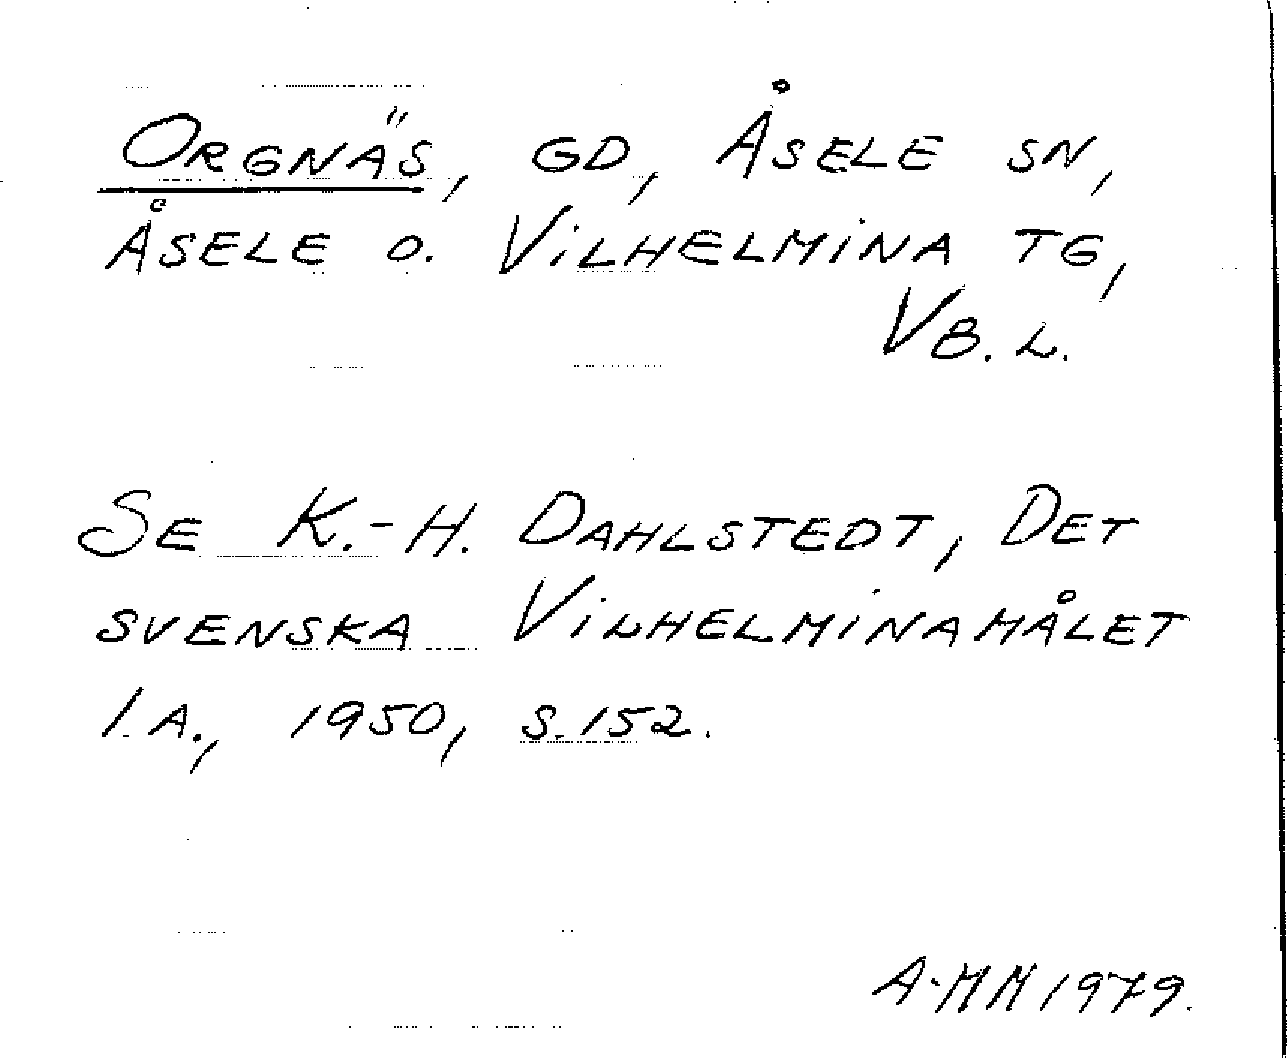 ORGNÄS, GD, ÅSELE SN,
ÅSELE O. VILHELMINA TG,
VB. L.
SE K.-H. DAHLSTEDT, DET
SVENSKA VILHELMINAMÅLET
1.A., 1950, S. 152.
A-MM 1979.